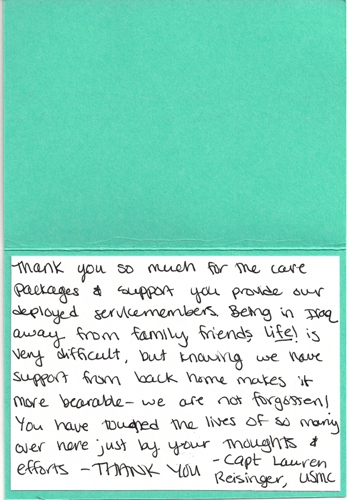 Thank you so much for the care
packages & support you provide our
deployed servicemembers. Being in Iraq
away from family friends life! is
very difficult, but knowing we have
support from back home makes it
more bearable - we are not forgotten!
You have touched the lives of so many
over here just by your thoughts &
efforts - THANK YOU - Capt Lauren
Reisinger, USMC